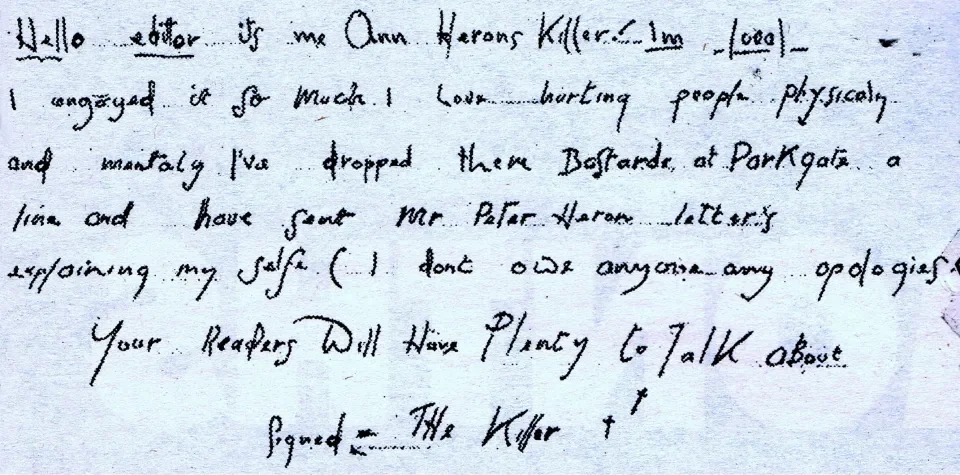 Hello editor its me Ann Herons Killer. Im local
I engoyed it so much I Love hurting people physicaly
and mentaly I've dropped there Bastards at Parkgate a
line and have sent Mr Peter Heron letter's
explaining my selfe ( I dont owe anyone any apologies
Your Readers Will Have Plenty to Talk about
Signed = THe Killer ††